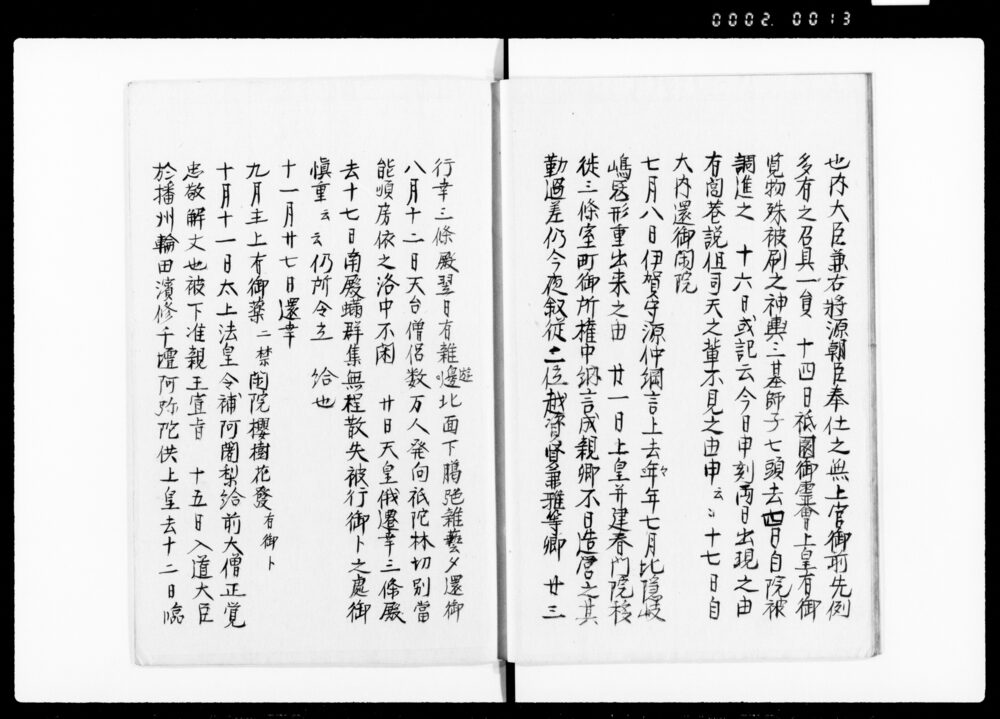 0002.0013
也内大臣兼右將源朝臣奉仕之無上官御前先例
多有之召具一員 十四日祗園御霊會上皇有御
覧物殊被刷之神輿三基師子七頭去四日自院被
調進之 十六日或記云今日申刻両日出現之由
有閭巷説但司天之輩不見之由申云々 十七日自
大内還御閑院
七月八日伊賀守源仲綱言上去年年七月比隠岐
嶋 形重出来之由 廿一日上皇并建春門院移
徙三條室町御所権中納言成親卿不日造営之其
勤過差仍今夜叙従二位越 督兼雅等卿 廿三
行幸三條殿翌日有雑遊北面下臈 雑藝夕還御
八月十二日天台僧侶数万人発向祇陀林切別當
能順房依之洛中不閑 廿日天皇俄遷幸三條殿
去十七日南殿 群集無程散失被行御卜之處御
慎重云云仍所令立給也
十一月廿七日還幸
九月主上有御薬二禁閑院櫻樹花發有御卜
十月十一日太上法皇令補阿闍梨給前大僧正覚
忠敬解文也被下准親王宣旨 十五日入道大臣
於播州輪田濱修千壇阿弥陀供上皇去十二日臨